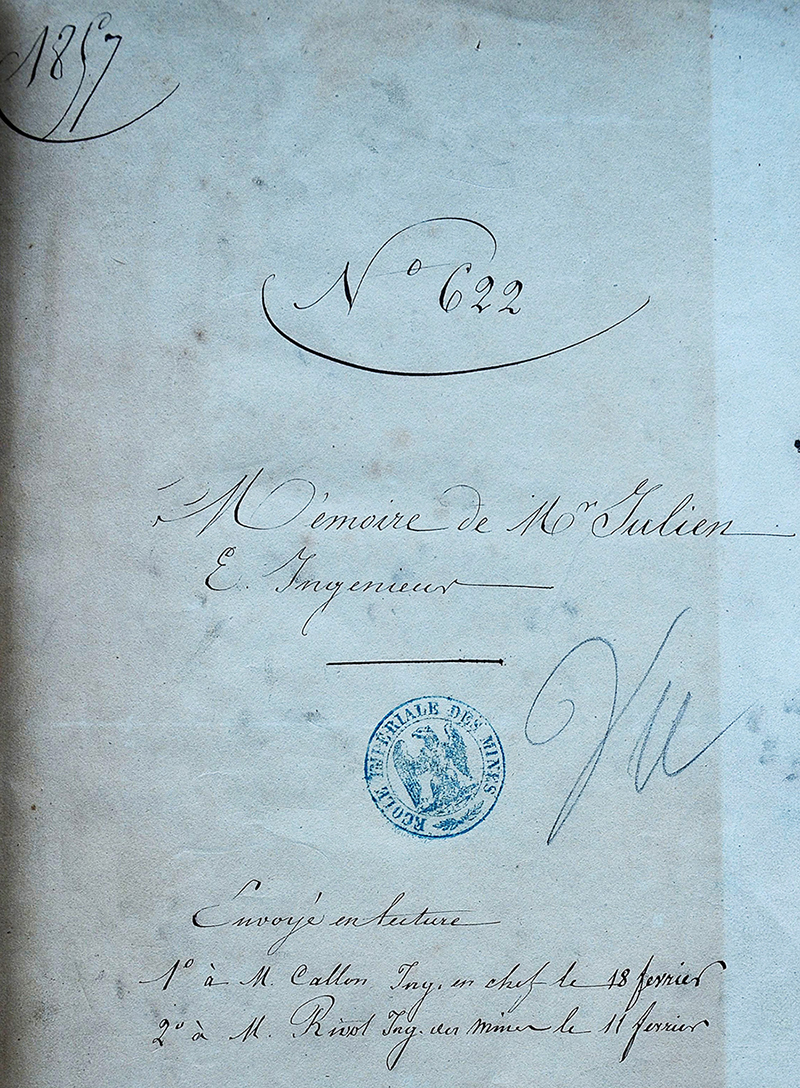 1857
N° 622
Mémoire de Mr Julien
E. Ingenieur
ECOLE IMPERIALE DES MINES
Vu
Envoyé en lecture
1° à M. Callon Ing. en chef le 18 fevrier
2° à M. Rivot Ing. des mines le 11 fevrier